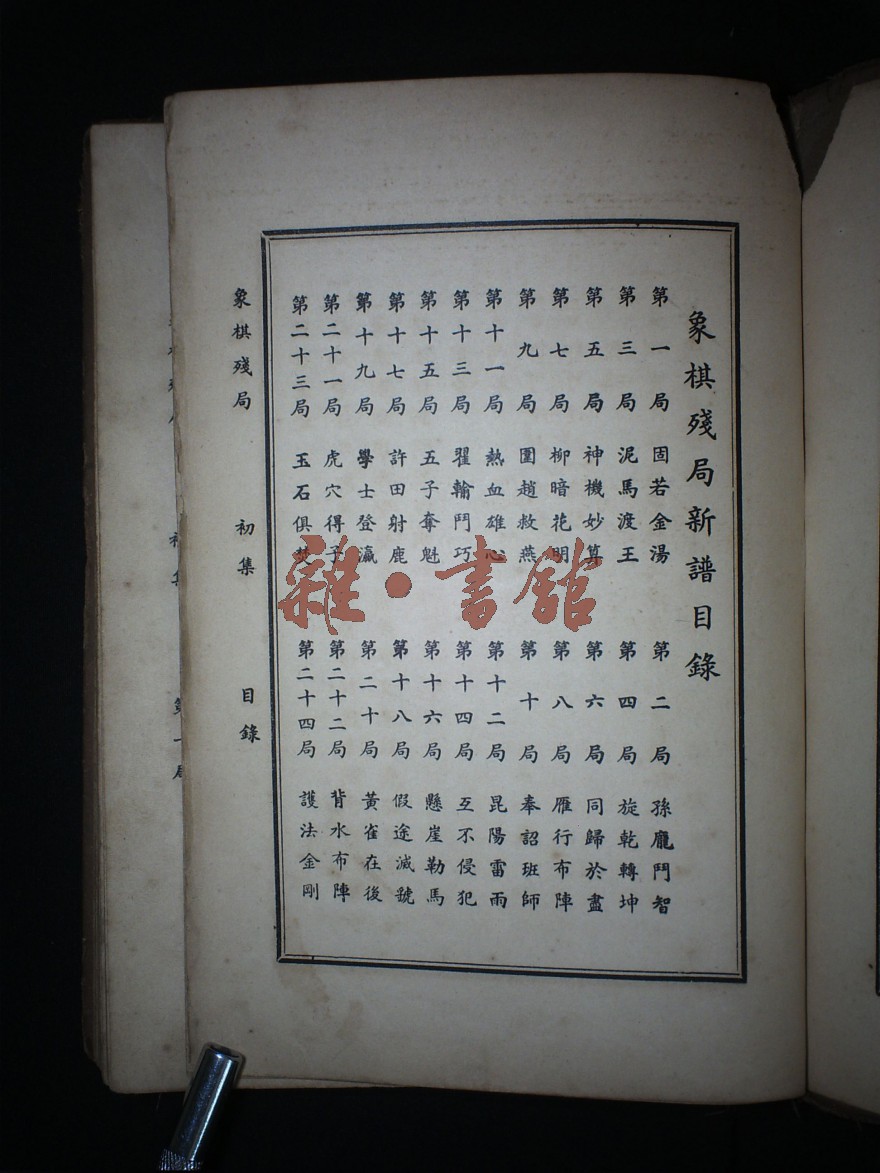 象棋殘局新譜目錄
第一局 固若金湯
第二局 孫龐鬥智
第三局 泥馬渡王
第四局 旋乾轉坤
第五局 神機妙算
第六局 同歸於盡
第七局 柳暗花明
第八局 雁行布陣
第九局 圍趙救燕
第十局 奉詔班師
第十一局 熱血雄心
第十二局 昆陽雷雨
第十三局 翟輸鬥巧
第十四局 互不侵犯
第十五局 五子奪魁
第十六局 懸崖勒馬
第十七局 許田射鹿
第十八局 假途滅虢
第十九局 學士登瀛
第二十局 黃雀在後
第二十一局 虎穴得子
第二十二局 背水布陣
第二十三局 玉石俱焚
第二十四局 護法金剛
象棋殘局 初集 目錄
雜·書館